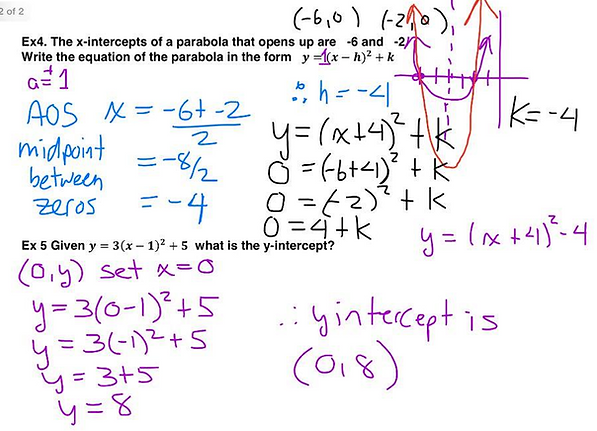 2 of 2
(-6,0) (-2,0)
Ex4. The x-intercepts of a parabola that opens up are -6 and -2
Write the equation of the parabola in the form y = 1(x – h)² + k
a = +1
AOS x = -6 + -2
2
midpoint = -8/2
between
zeros = -4
∴ h = -4
y = (x+4)² + k
0 = (-6+4)² + k
0 = (-2)² + k
0 = 4 + k
K = -4
y = (x+4)² - 4
Ex 5 Given y = 3(x – 1)² + 5 what is the y-intercept?
(0,y) set x=0
y = 3(0-1)² + 5
y = 3(-1)² + 5
y = 3 + 5
y = 8
∴ y intercept is
(0,8)